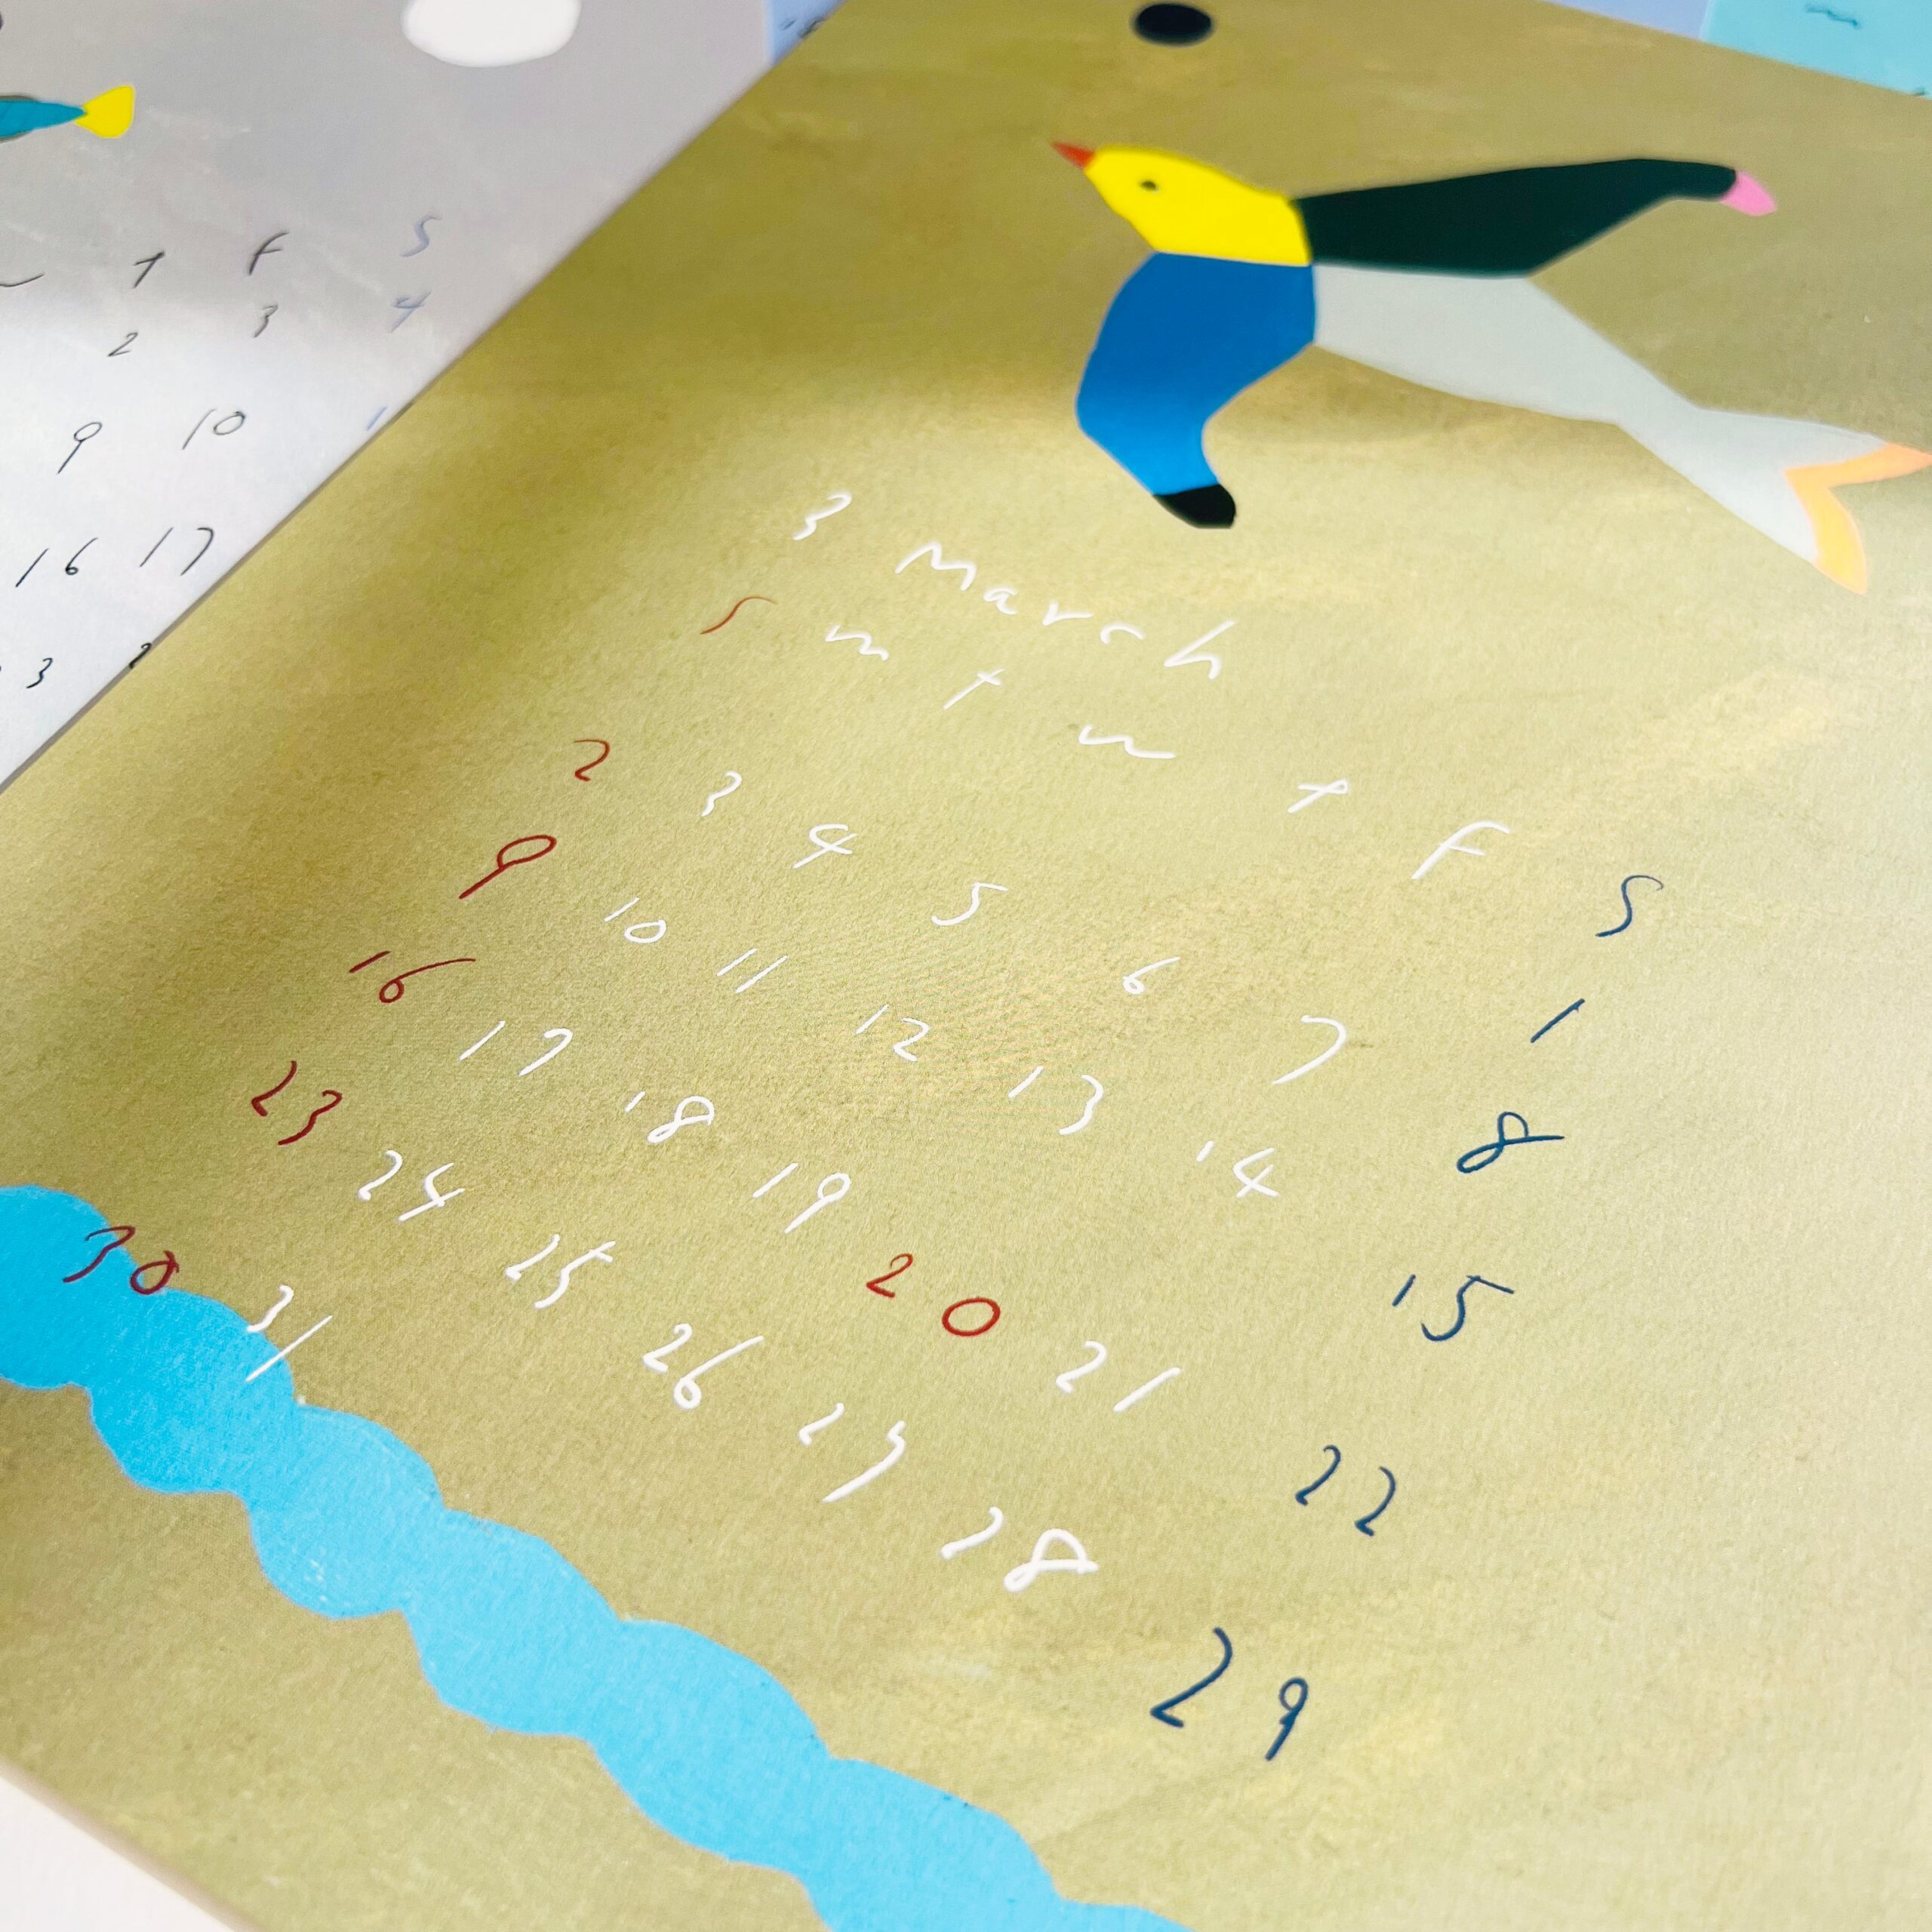 T F S
2 3 4
9 10
16 17
3
3 March
S m t w t F S
1
2 3 4 5 6 7 8
9 10 11 12 13 14 15
16 17 18 19 20 21 22
23 24 25 26 27 28 29
30 31